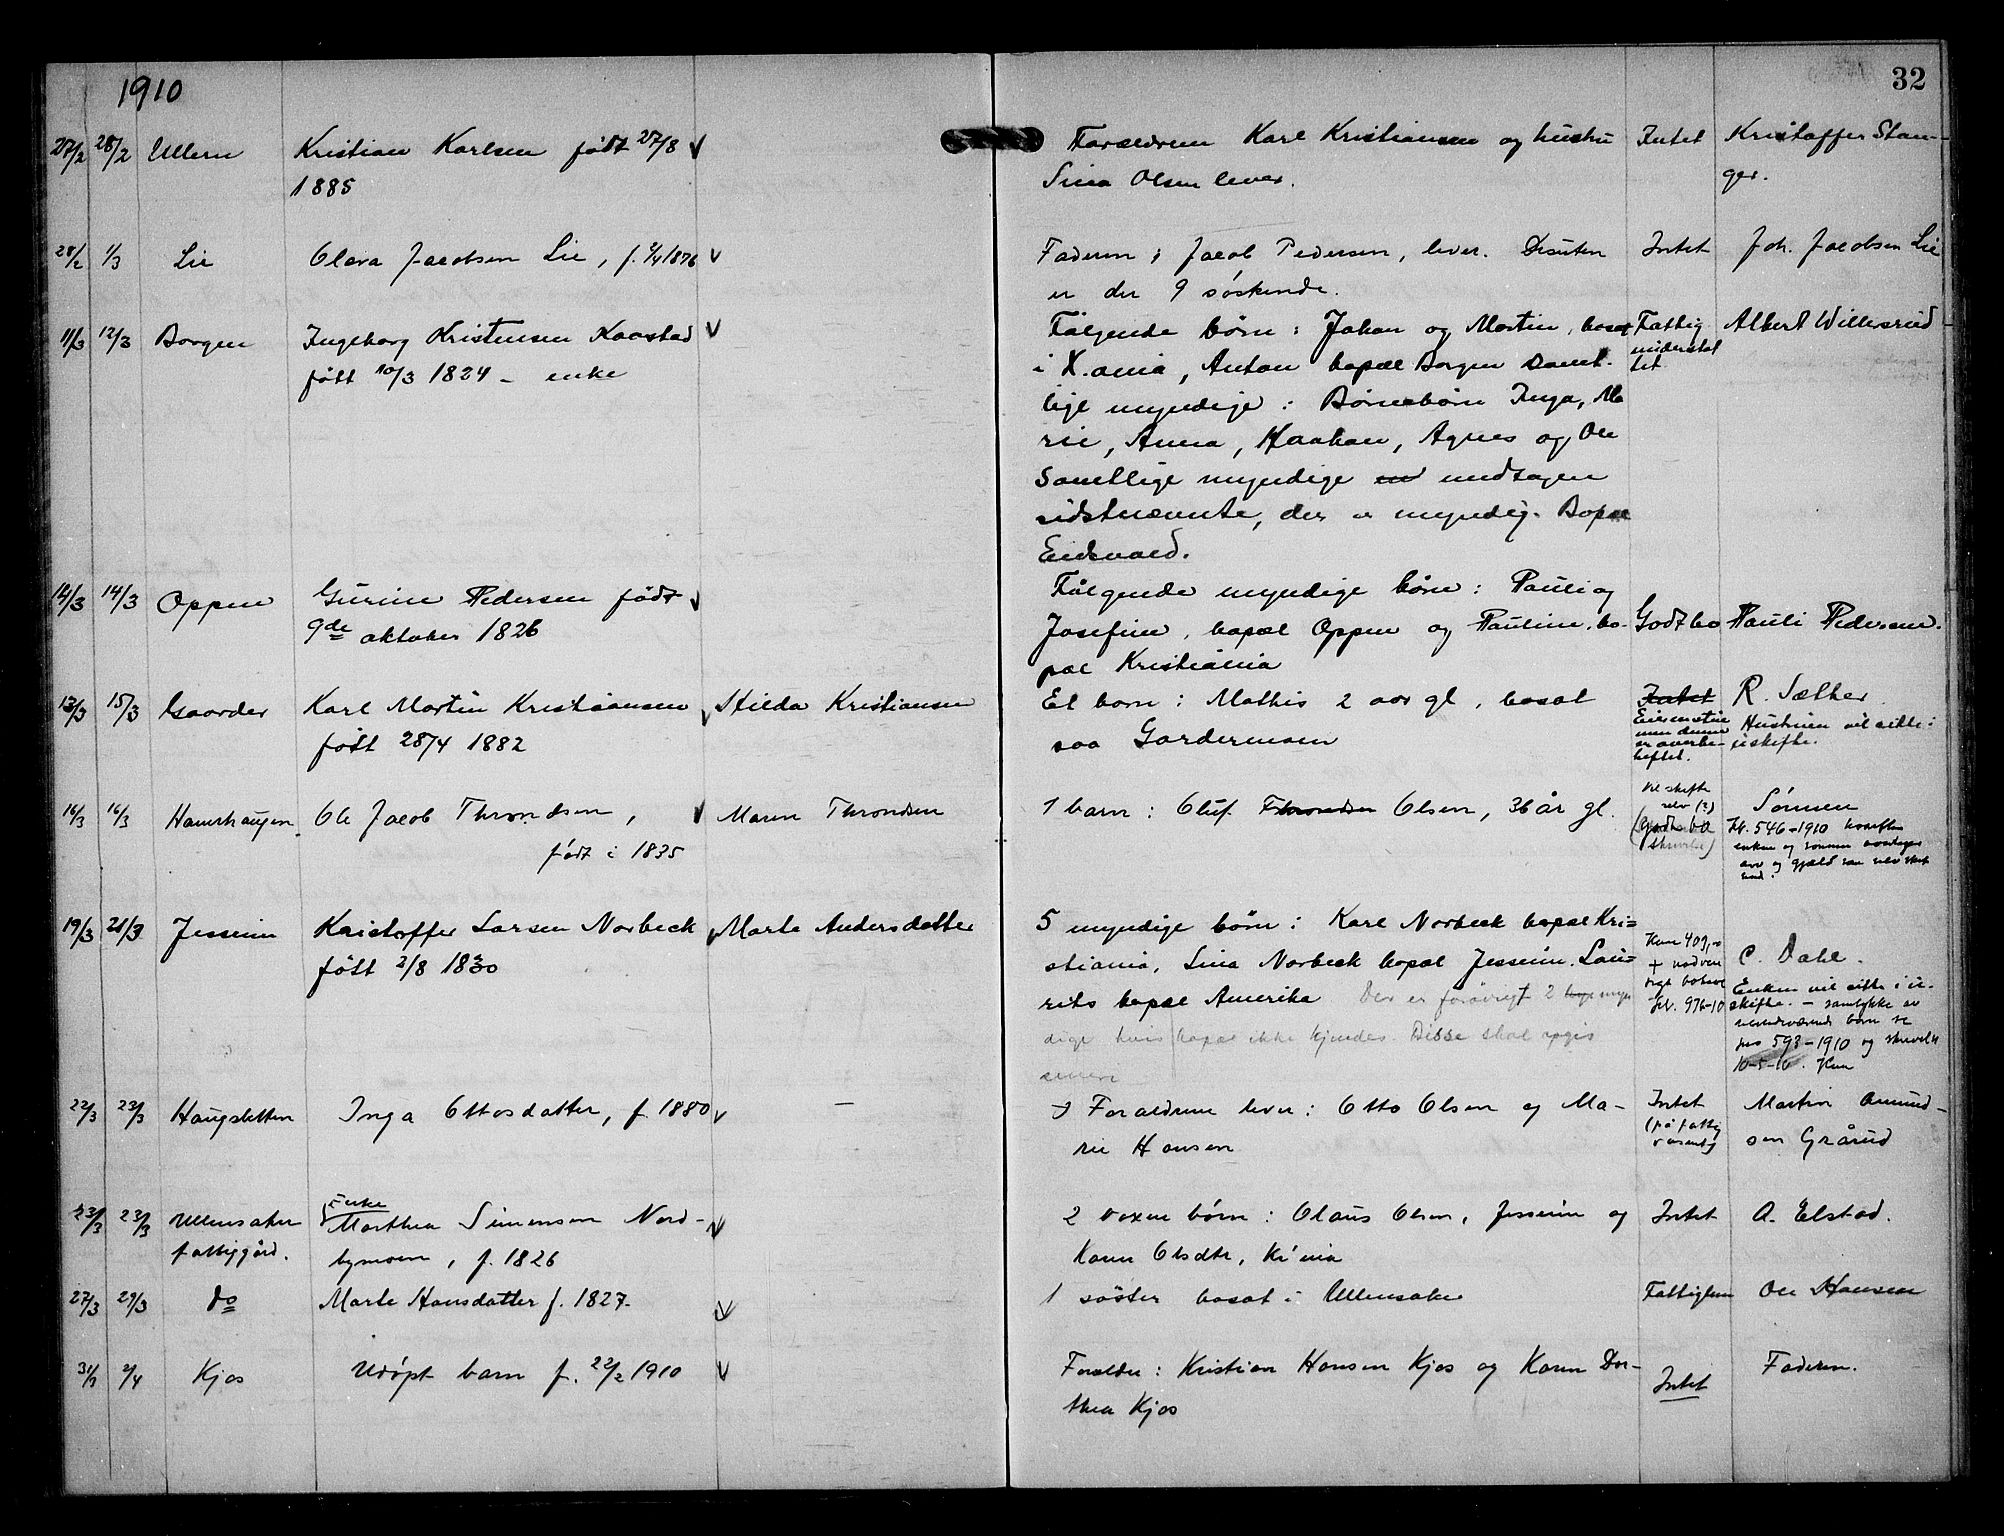 1910
32
27/2 28/2 Ullern Kristian Karlsen født 27/8 Forældrene Karl Kristiansen og hustru Intet Kristoffer Stan-
1885 Sina Olsen lever. ger.
28/2 1/3 Lie Olava Jacobsen Lie, f. 2/4 1876 Faderen, Jacob Pedersen, lever. Desuten Intet Joh. Jacobsen Lie
er der 9 søskende.
11/3 12/3 Borgen Ingeborg Kristensen Kaastad Følgende børn: Johan og Martin, bosat Fattig Albert Willersrud
født 10/3 1824 - enke i X.ania, Anton bopæl Borgen samt- understøt
lige myndige: Børnebørn Inga, Ma tet
rie, Anna, Haakan, Agnes og Ole
Samtlige myndige undtagen
sidstnævnte, der er myndig. Bopæl
Eidsvold.
14/3 14/3 Oppen Gurine Pedersen født Følgende myndige børn: Pauli og
9de oktober 1826 Josefine, bopæl Oppen og Pauline, bo- Godt bo Pauli Pedersen.
pæl Kristiania
13/3 15/3 Gaarder Karl Martin Kristiansen Hilda Kristiansen Et barn: Mathis 2 aar gl, bosat Intet R. Sæther
født 28/4 1882 paa Gardermoen Eiermotiv men denne er overbe- heftet. Hustruen vil sitte i
uskifte.
16/3 16/3 Haverhaugen Ole Jacob Throndsen, Maren Throndsen 1 barn: Oluf Throndsen Olsen, 36 år gl. Vil skifte selv (?) Sønnen
født i 1835 (Godt bo skrivelse) Jr. 546-1910 hvorefter
enken og sønnen overtager
arv og gjæld som selv skift
end.
19/3 21/3 Jessum Kristoffer Larsen Norbeck Marte Andersdatter 5 myndige børn: Karl Norbeck bopæl Kri-
født 2/8 1830 stiania, Lina Norbeck bopæl Jessum. Lau- Kun 409,- C. Dahl.
rits bopæl Amerika Der er forøvrigt 2 myn + nødven Enken vil sitte i u-
dige hvis bopæl ikke kjendes. Disse skal opgis Jr. 976-10 skifte. - samtykke av
senere nærværende børn se
jno 593-1910 og skrivelse
10-5-10.
22/3 23/3 Haugsletten Inga Ottosdatter, f. 1880 - Forældrene lever: Otto Olsen og Ma- Intet Martin Amund-
rie Hansen (på fattig væsenet) sen Grårud
23/3 23/3 Ullensaker Enke
Marthea Simensen Nord- 2 voxne børn: Olaus Olsen, Jessum og Intet A. Elstad.
fattiggård. bymoen, f. 1826 Karen Olsdtr, Kr'nia
27/3 29/3 do Marte Hansdatter f. 1827. 1 søster bosat i Ullensaker Fattiglem Ole Hansen
31/3 2/4 Kjos Udøpt barn f. 22/2 1910 Forældre: Kristian Hansen Kjos og Karen Dor- Intet Faderen.
thea Kjos